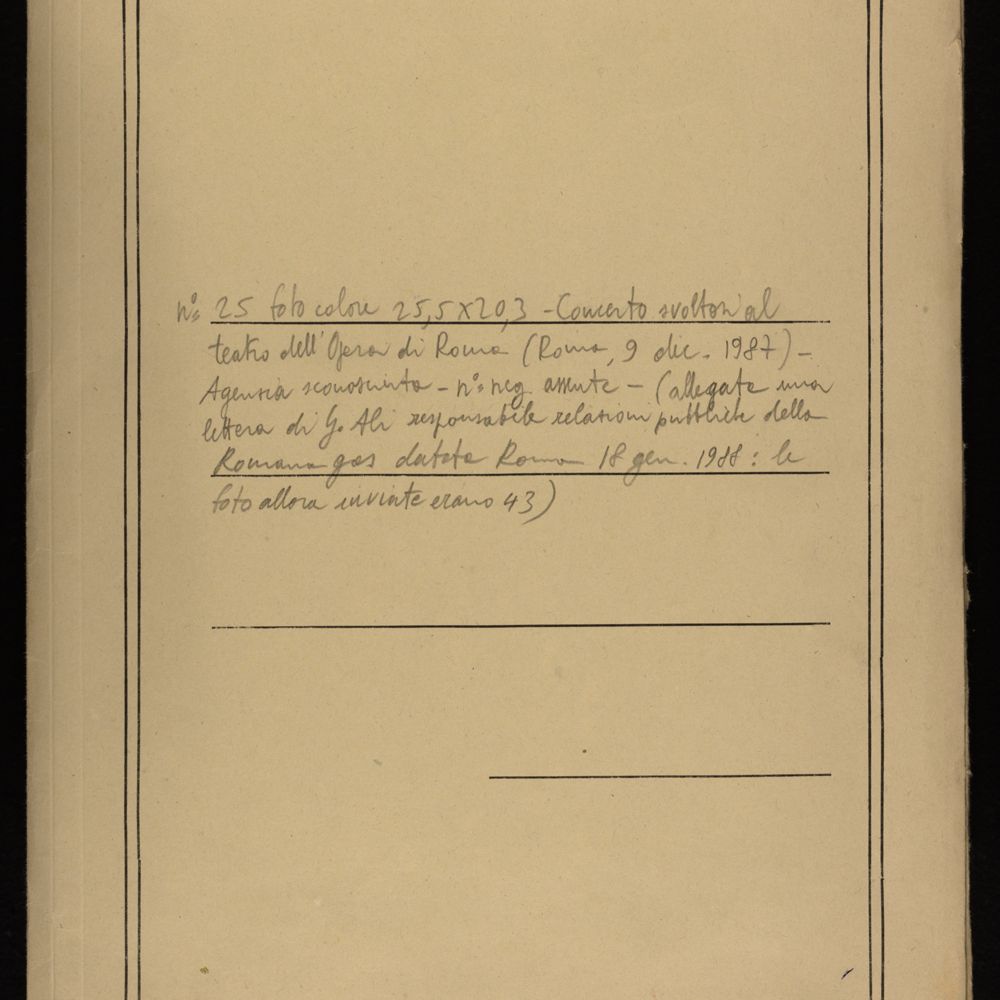 n°= 25 foto colore 25,5 x 20,3 - Concerto svoltosi al
teatro dell'Opera di Roma (Roma, 9 dic. 1987) -
Agenzia sconosciuta - n°= neg. assente - (allegata una
lettera di G. Ali responsabile relazioni pubbliche della
Romana gas datata Roma 18 gen. 1988 : le
foto allora inviate erano 43)